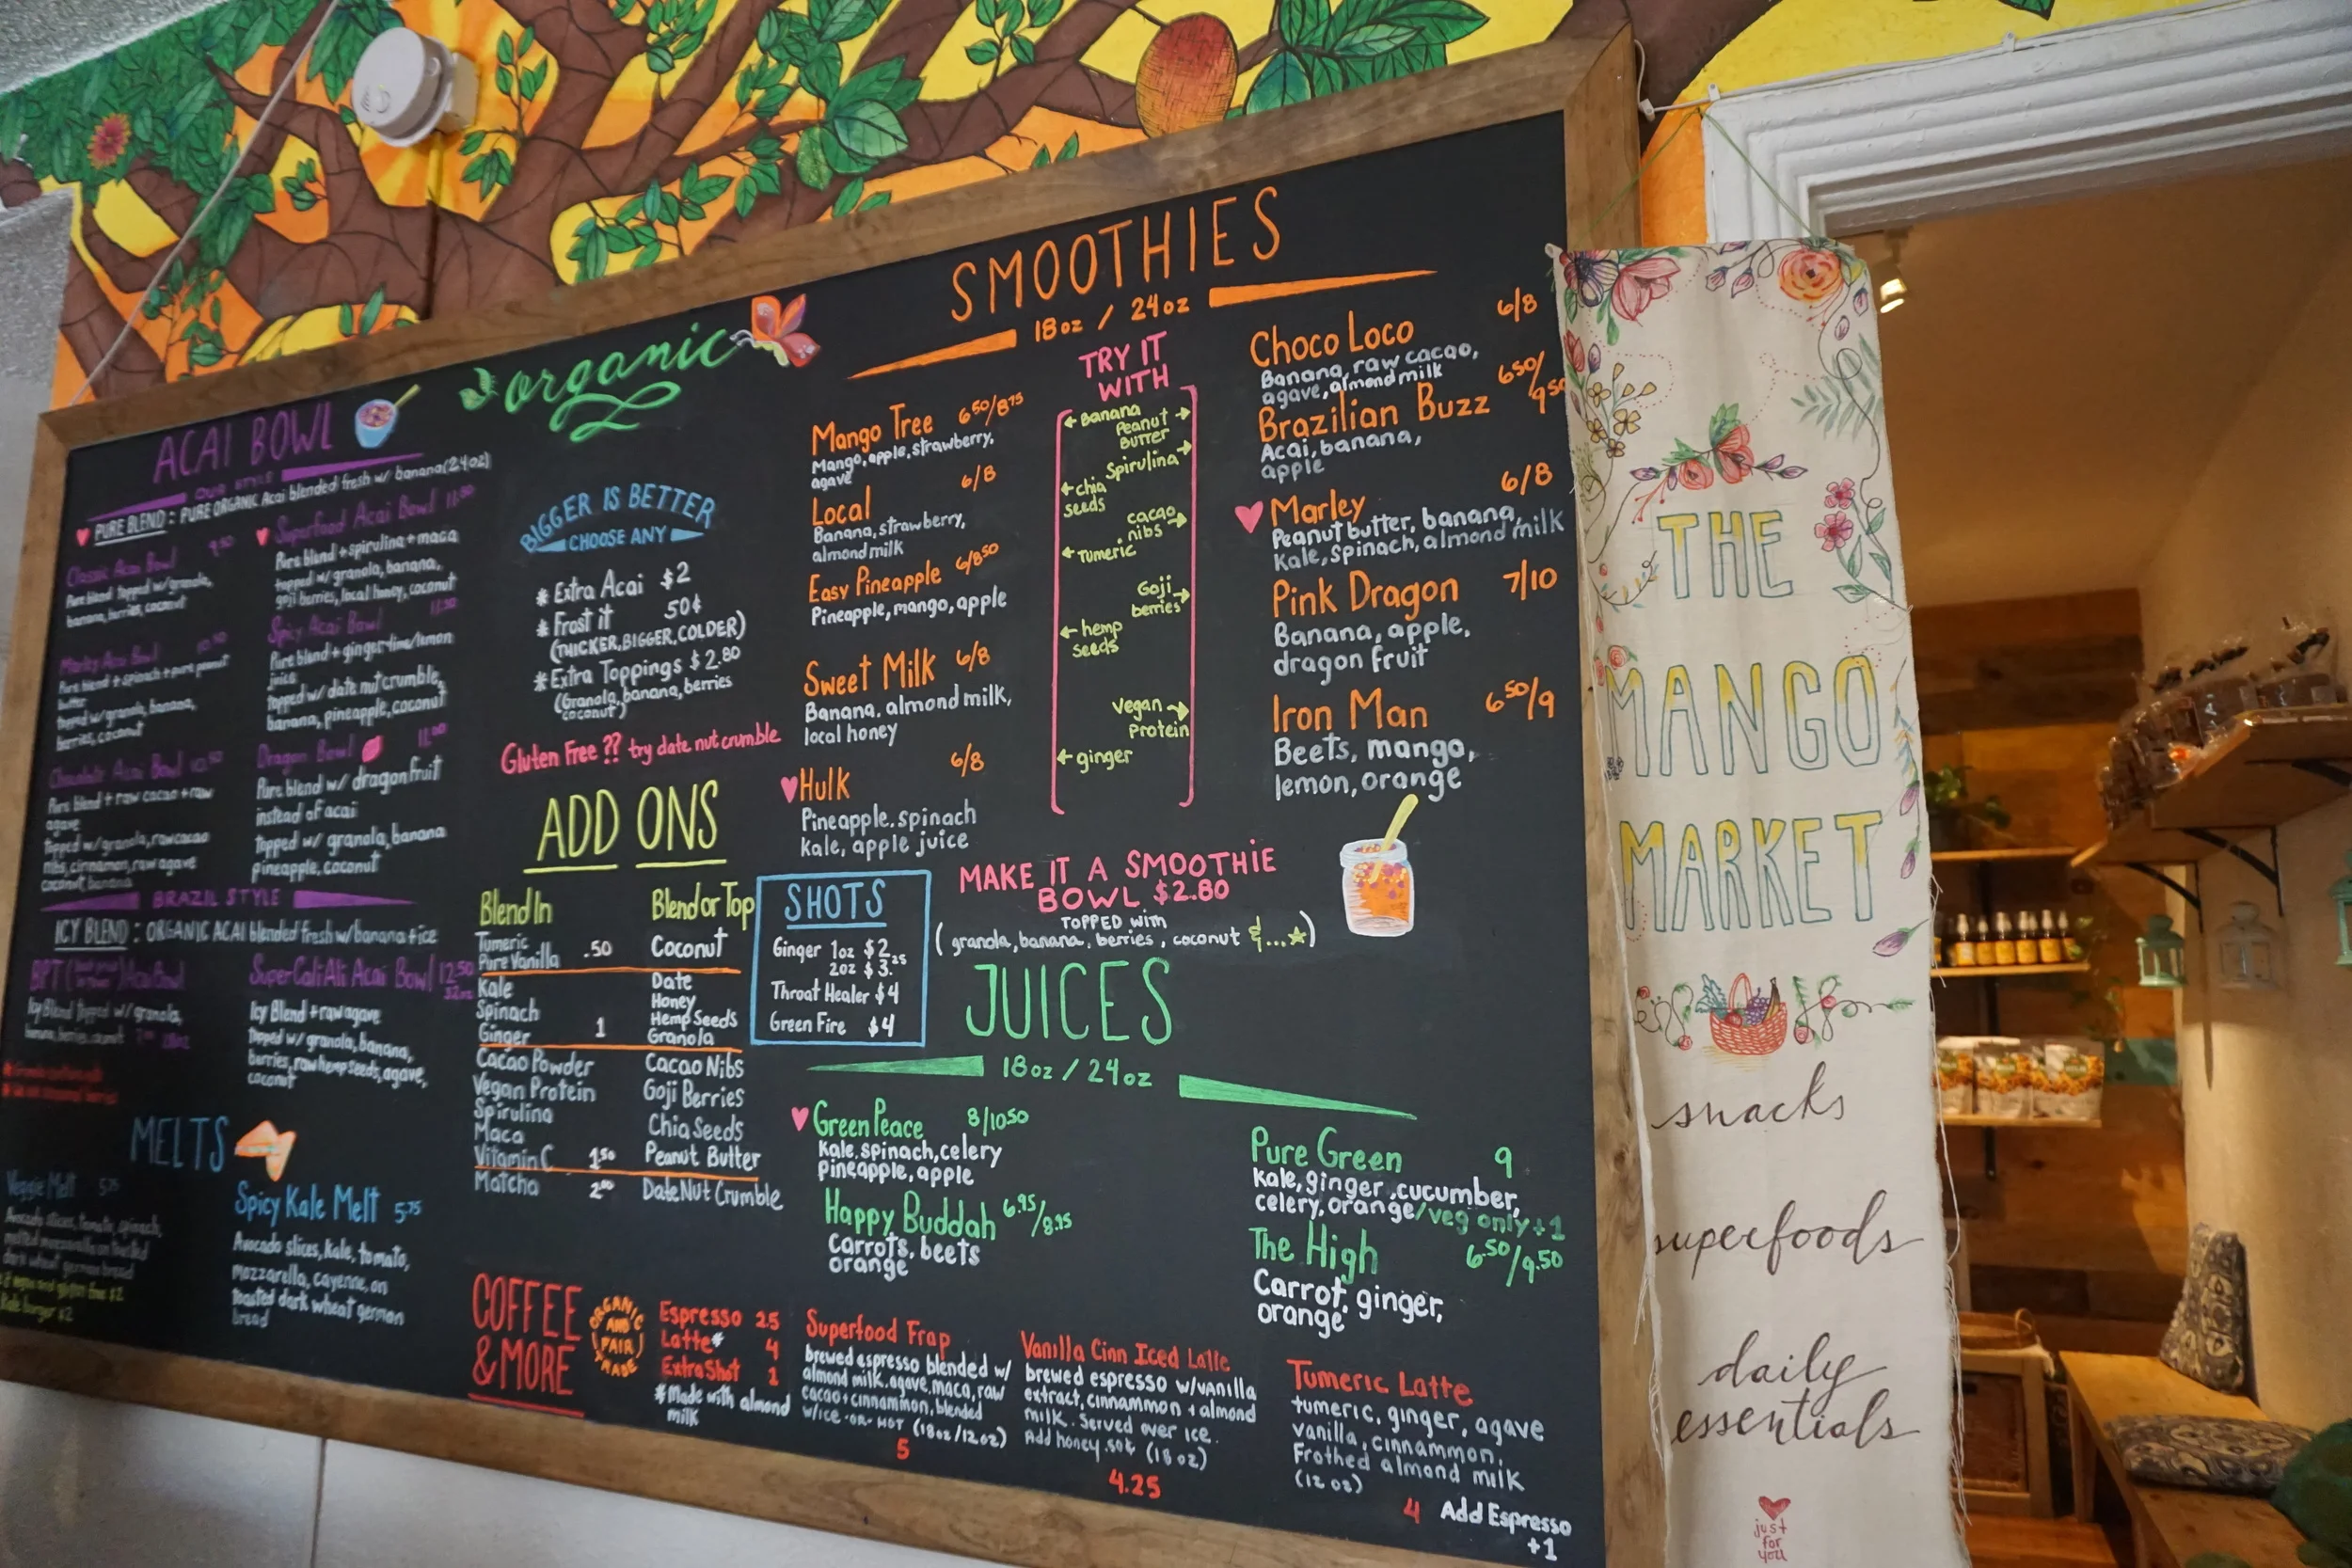 ACAI BOWL
OUR STYLE
PURE BLEND: PURE ORGANIC Acai blended fresh w/ banana (24oz)
Classic Acai Bowl 9.50
Pure blend topped w/granola,
banana, berries, coconut
Marley Acai Bowl 10.50
Pure blend + spinach + pure peanut
butter
topped w/granola, banana,
berries, coconut
Chocolate Acai Bowl 10.50
Pure blend + raw cacao + raw
agave
topped w/granola, raw cacao
nibs, cinnamon, raw agave
coconut, banana
Superfood Acai Bowl 11.50
Pure blend + spirulina + maca
topped w/ granola, banana,
goji berries, local honey, coconut
Spicy Acai Bowl 11.50
Pure blend + ginger + lime/lemon
juice
topped w/ date nut crumble,
banana, pineapple, coconut
Dragon Bowl 11.00
Pure blend w/ dragonfruit
instead of acai
Topped w/ granola, banana
pineapple, coconut
BRAZIL STYLE
ICY BLEND: ORGANIC ACAI blended fresh w/ banana + ice
BPT Acai Bowl
Icy Blend topped w/ granola,
banana, berries, coconut
SuperCaliAli Acai Bowl 12.50
32oz
Icy Blend + raw agave
Topped w/ granola, banana,
berries, raw hemp seeds, agave,
coconut
MELTS
Veggie Melt 5.75
Avocado slices, tomato, spinach,
melted mozzarella on toasted
dark wheat german bread
Spicy Kale Melt 5.75
Avocado slices, Kale, tomato,
mozzarella, cayenne, on
toasted dark wheat german
bread
organic
BIGGER IS BETTER
CHOOSE ANY
* Extra Acai $2
* Frost it 50¢
(THICKER, BIGGER, COLDER)
* Extra Toppings $2.80
(Granola, banana, berries
coconut)
Gluten Free ?? try date nut crumble
ADD ONS
Blend In
Tumeric
Pure Vanilla .50
Kale
Spinach
Ginger 1
Cacao Powder
Vegan Protein
Spirulina
Maca
Vitamin C 1.50
Matcha 2.00
Blend or Top
Coconut
Date
Honey
Hemp Seeds
Granola
Cacao Nibs
Goji Berries
Chia Seeds
Peanut Butter
Date Nut Crumble
SHOTS
Ginger 1oz $2.25
2oz $3.
Throat Healer $4
Green Fire $4
COFFEE
& MORE
ORGANIC
AND
FAIR
TRADE
Espresso 25
Latte* 4
Extra Shot 1
*Made with almond
milk
Superfood Frap
brewed espresso blended w/
almond milk, agave, maca, raw
cacao + cinnammon, blended
w/ICE -OR- HOT (18oz/12oz)
5
Vanilla Cinn Iced Latte
brewed espresso w/vanilla
extract, cinnammon + almond
milk. Served over ice.
Add honey .50¢ (18oz)
4.25
Tumeric Latte
tumeric, ginger, agave
vanilla, cinnammon,
Frothed almond milk
(12 oz)
4 Add Espresso
+1
SMOOTHIES
18oz / 24oz
Mango Tree 6.50/8.75
Mango, apple, strawberry,
agave
Local 6/8
Banana, strawberry,
almond milk
Easy Pineapple 6/8.50
Pineapple, mango, apple
Sweet Milk 6/8
Banana, almond milk,
local honey
Hulk 6/8
Pineapple, spinach
kale, apple juice
TRY IT
WITH
Banana
Peanut
Butter
Spirulina
chia
seeds
cacao
nibs
Tumeric
Goji
berries
hemp
seeds
vegan
protein
ginger
Choco Loco 6/8
Banana, raw cacao,
agave, almond milk
Brazilian Buzz 6.50/
9.50
Acai, banana,
apple
Marley 6/8
Peanut butter, banana,
Kale, spinach, almond milk
Pink Dragon 7/10
Banana, apple,
dragon fruit
Iron Man 6.50/9
Beets, mango,
lemon, orange
MAKE IT A SMOOTHIE
BOWL $2.80
TOPPED WITH
(granola, banana, berries, coconut &...)
JUICES
18oz / 24oz
Green Peace 8/10.50
Kale, spinach, celery
pineapple, apple
Happy Buddah 6.95/8.95
Carrots, beets
orange
Pure Green 9
Kale, ginger, cucumber,
celery, orange/veg only +1
The High 6.50/9.50
Carrot, ginger,
orange
THE
MANGO
MARKET
snacks
superfoods
daily
essentials
just
for
you